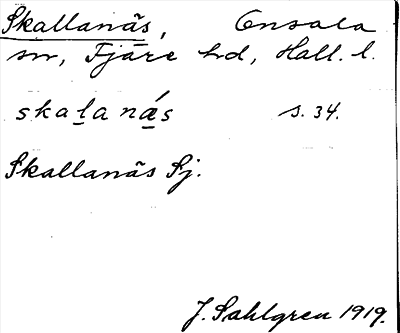 Skallanäs, Onsala
sn, Fjäre hd, Hall. l.
skaḻa nǽ̱s s. 34.
Skallanäs Sj.
J. Sahlgren 1919.